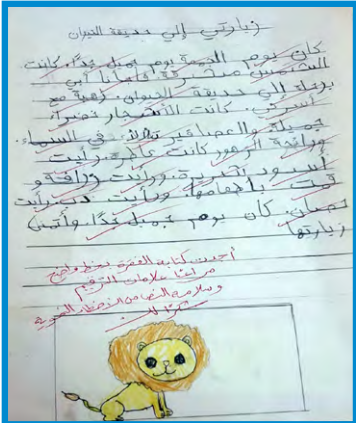 زيارتي إلى حديقة الحيوان
كان يوم الجمعة يوم جميل جدًا. كانت
الشمس مشرقة فأخذنا أبي
برحلة إلى حديقة الحيوان. ذهبت مع
أسرتي. كانت الأشجار خضراء
جميلة والعصافير في السماء.
ورائحة الزهور كانت عاطرة. رأيت
أسود كثيرة. ورأيت زرافة و
قمت بإطعامها. ورأيت دب. رأيت
حصان. كان يوم جميل جدًا. وأتمنى
زيارتها
أحسنت كتابة الفقرة بخط واضح
مراعيًا علامات الترقيم
وسلامة النص من الأخطاء
شكرًا لك